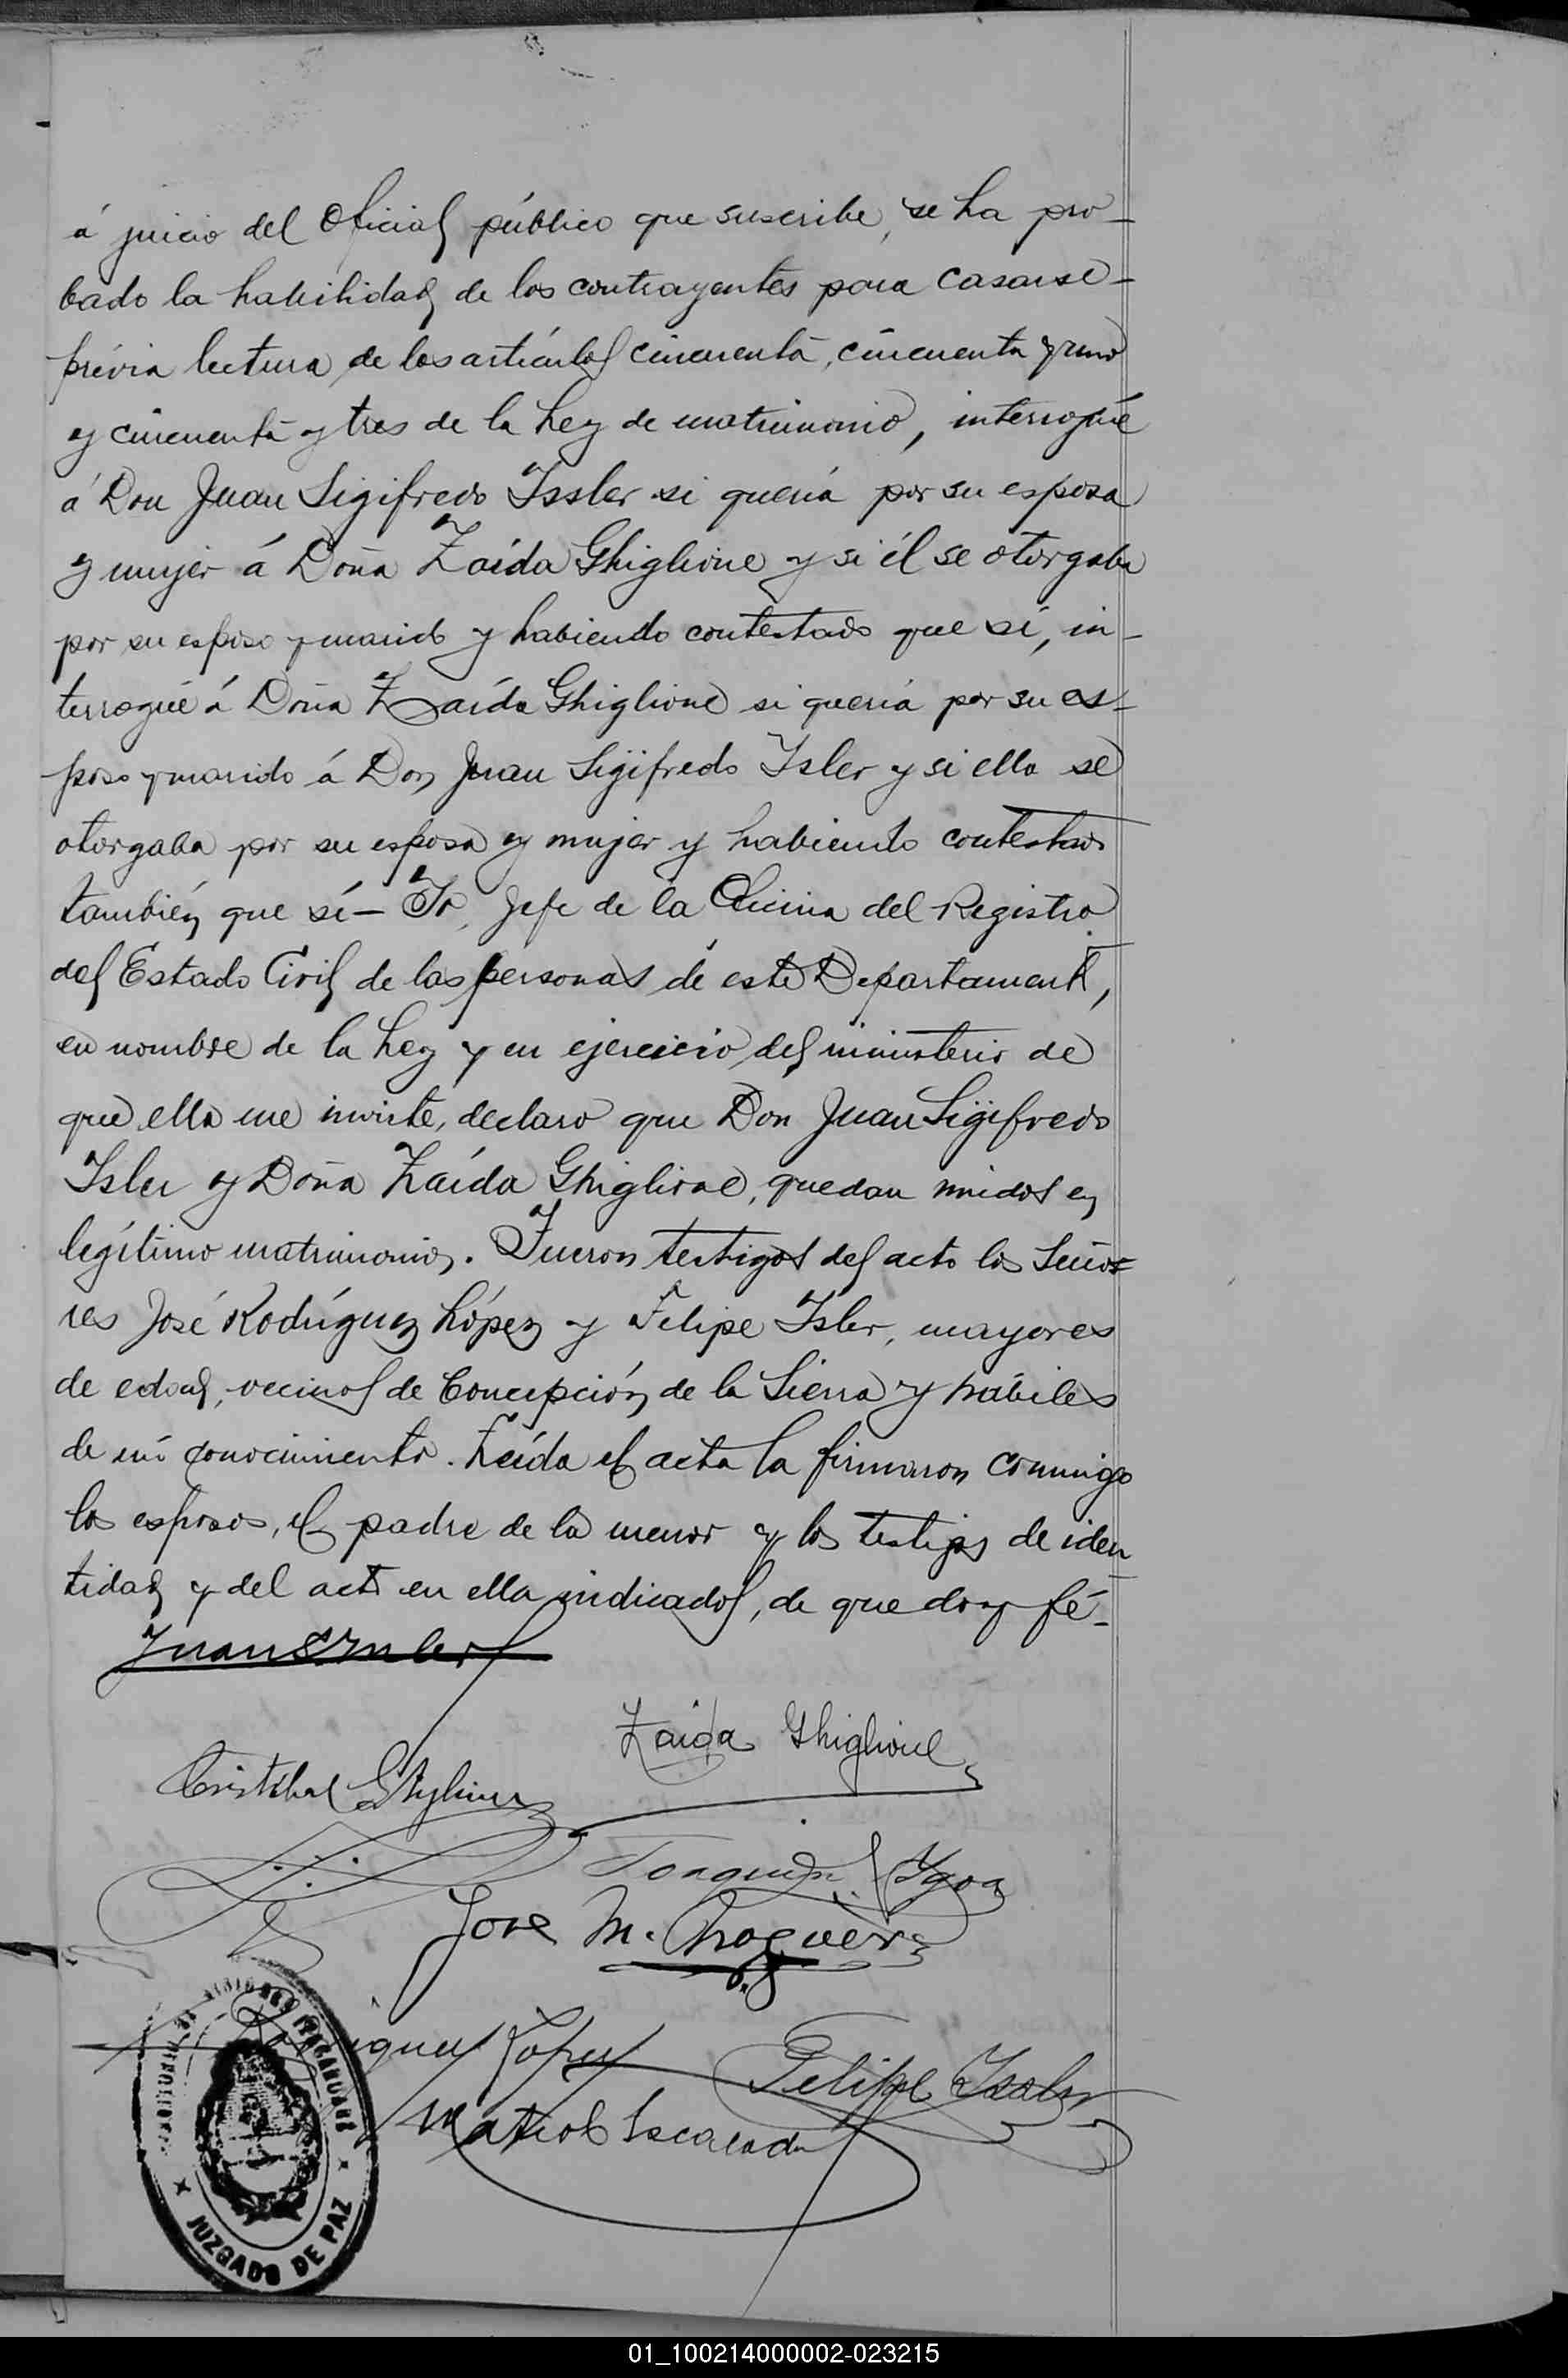 á juicio del Oficial público que suscribe, se ha pro-
bado la habilidad de los contrayentes para casarse-
prévia lectura de los artículos cincuenta, cincuenta y uno
y cincuenta y tres de la Ley de matrimonio, interrogué
á Don Juan Sigifredo Issler si quería por su esposa
y mujer á Doña Zaída Ghiglione y si él se otorgaba
por su esposo y marido y habiendo contestado que sí, in-
terrogué á Doña Zaída Ghiglione si quería por su es-
poso y marido á Don Juan Sigifredo Isler y si ella se
otorgaba por su esposa y mujer y habiendo contestado
también que sí- Yo, Jefe de la Oficina del Registro
del Estado Civil de las personas de este Departamento,
en nombre de la Ley y en ejercicio del ministerio de
que ella me inviste, declaro que Don Juan Sigifredo
Isler y Doña Zaída Ghiglione, quedan unidos en
legítimo matrimonio. Fueron testigos del acto los Seño-
res José Rodríguez López y Felipe Isler, mayores
de edad, vecinos de Concepción de la Sierra y hábiles
de mi conocimiento. Leída el acta la firmaron conmigo
los esposos, el padre de la menor y los testigos de iden
tidad y del acto en ella indicados, de que doy fé-
Juan S. Isler
Zaida Ghiglione
Cristóbal Ghiglione
Joaquin Ygoa
Jose M.
Rodriguez López
Felipe Issler
Escalada
JUZGADO DE PAZ
01_100214000002-023215